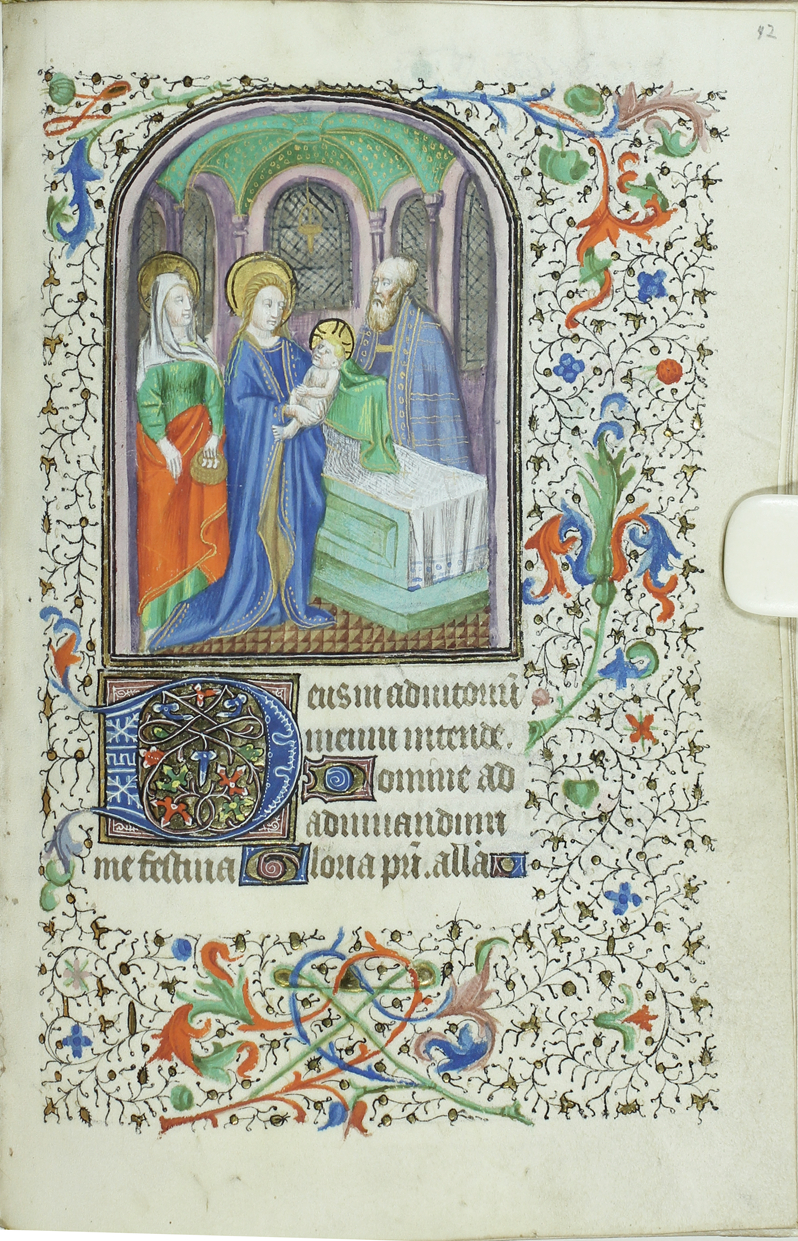 42
Deus in adiutoriū
meum intende.
Domine ad
adiuuandum
me festina Gloria pr̄i. all'a